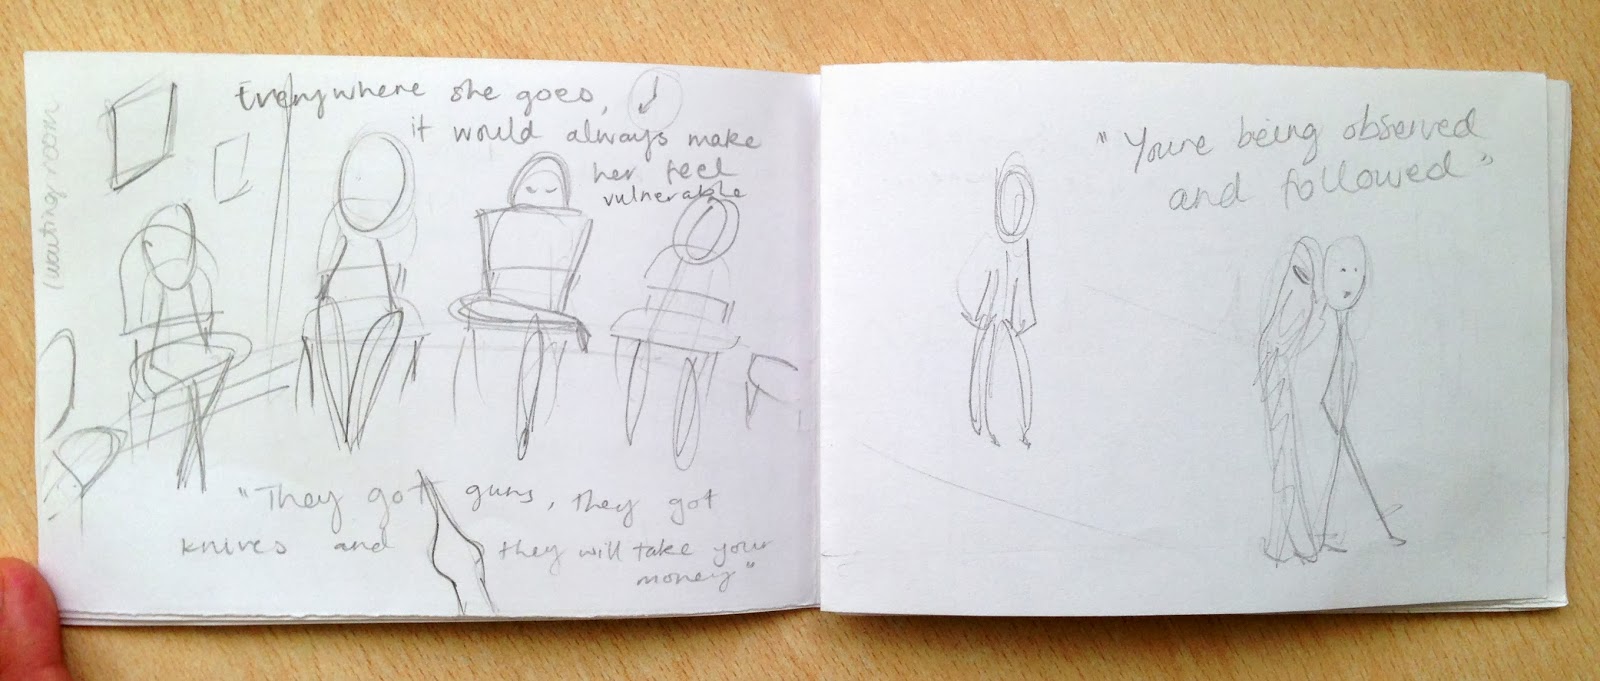 waiting room
Everywhere she goes,
it would always make
her feel
vulnerable
"They got guns, they got
knives and they will take your
money"
"You're being observed
and followed"